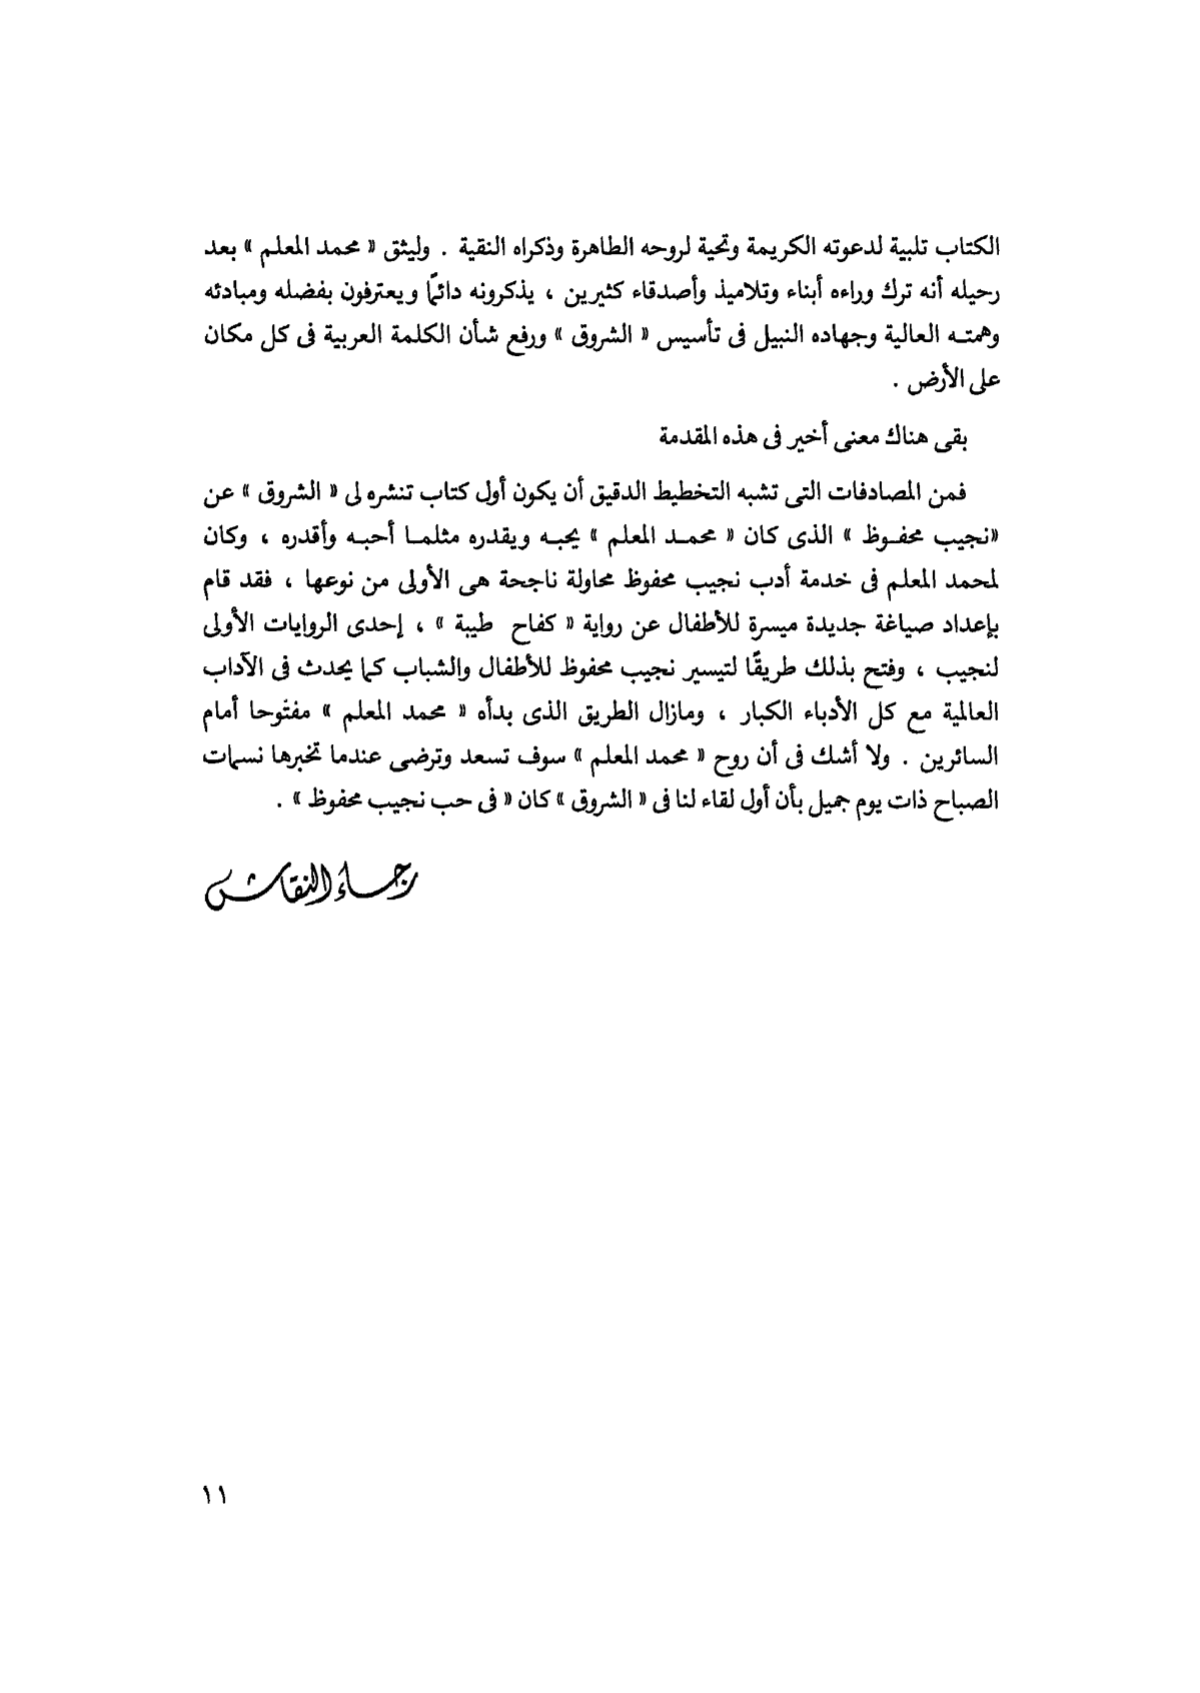 الكتاب تلبية لدعوته الكريمة وتحية لروحه الطاهرة وذكراه النقية . وليثق « محمد المعلم » بعد
رحيله أنه ترك وراءه أبناء وتلاميذ وأصدقاء كثيرين ، يذكرونه دائمًا ويعترفون بفضله ومبادئه
وهمتـه العالية وجهاده النبيل فى تأسيس « الشروق » ورفع شأن الكلمة العربية فى كل مكان
على الأرض .
بقى هناك معنى أخير فى هذه المقدمة
فمن المصادفات التى تشبه التخطيط الدقيق أن يكون أول كتاب تنشره لى « الشروق » عن
«نجيب محفـوظ » الذى كان « محمـد المعلم » يحبـه ويقدره مثلمـا أحبـه وأقدره ، وكان
لمحمد المعلم فى خدمة أدب نجيب محفوظ محاولة ناجحة هى الأولى من نوعها ، فقد قام
بإعداد صياغة جديدة ميسرة للأطفال عن رواية « كفاح طيبة » ، إحدى الروايات الأولى
لنجيب ، وفتح بذلك طريقًا لتيسير نجيب محفوظ للأطفال والشباب كما يحدث فى الآداب
العالمية مع كل الأدباء الكبار ، ومازال الطريق الذى بدأه « محمد المعلم » مفتوحا أمام
السائرين . ولا أشك فى أن روح « محمد المعلم » سوف تسعد وترضى عندما تخبرها نسمات
الصباح ذات يوم جميل بأن أول لقاء لنا فى « الشروق » كان « فى حب نجيب محفوظ » .
رجاء النقاش
١١